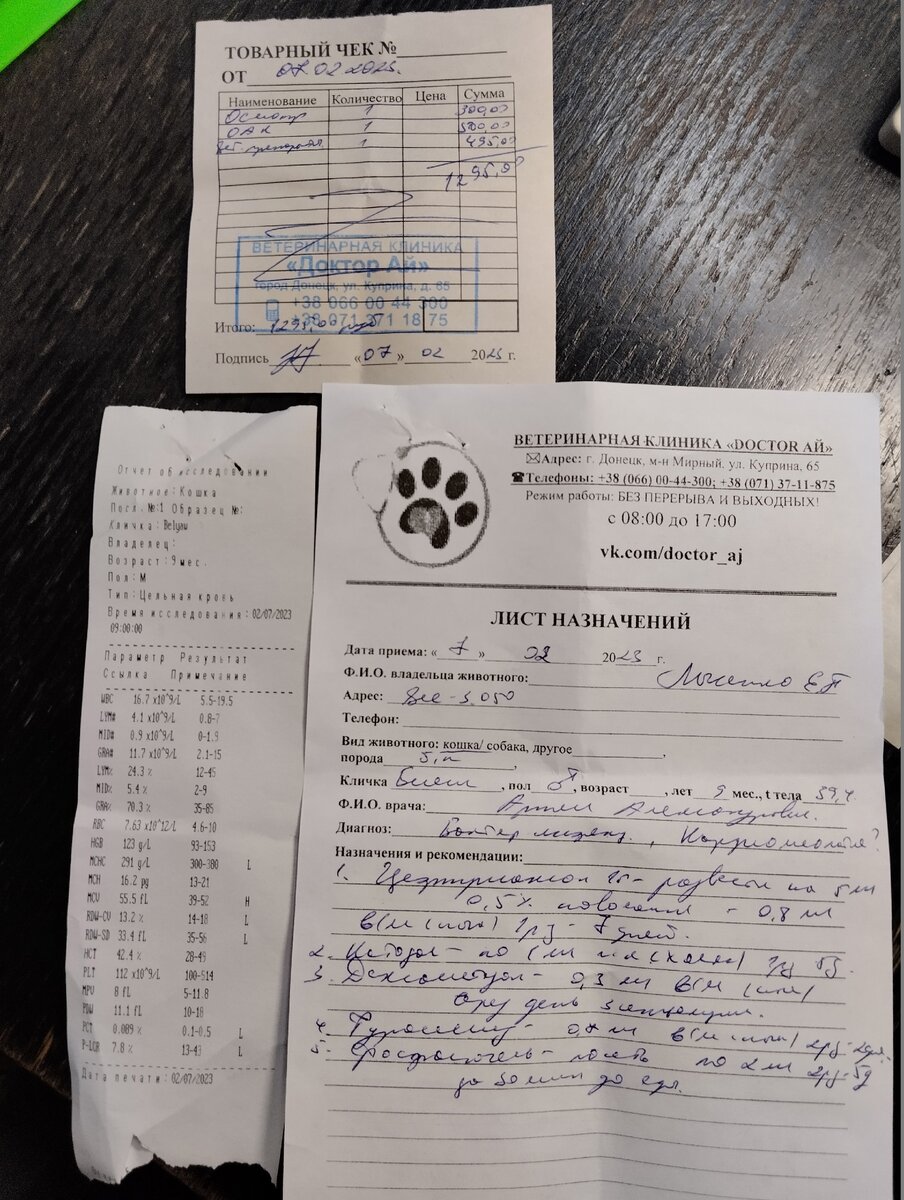 ТОВАРНЫЙ ЧЕК №
ОТ 07.02 2023.
Наименование Количество Цена Сумма
Осмотр 1 300,00
ОАК 1 500,00
Вет. препараты 1 495,00
1295,00
ВЕТЕРИНАРНАЯ КЛИНИКА
«Доктор Ай»
город Донецк, ул. Куприна, д. 65
+38 066 00 44 300
+38 071 371 18 75
Итого: 1295,00 руб
Подпись «07» 02 2023 г.
Отчет об исследовании
Животное: Кошка
Посл. №:1 Образец №:
Кличка: Belyaw
Владелец:
Возраст: 9 мес.
Пол: М
Тип: Цельная кровь
Время исследования: 02/07/2023
09:00:00
Параметр Результат
Ссылка Примечание
WBC 16.7 x10^9/L 5.5-19.5
LYM# 4.1 x10^9/L 0.8-7
MID# 0.9 x10^9/L 0-1.9
GRA# 11.7 x10^9/L 2.1-15
LYM% 24.3 % 12-45
MID% 5.4 % 2-9
GRA% 70.3 % 35-85
RBC 7.63 x10^12/L 4.6-10
HGB 123 g/L 93-153
MCHC 291 g/L 300-380 L
MCH 16.2 pg 13-21
MCV 55.5 fL 39-52 H
RDW-CV 13.2 % 14-18 L
RDW-SD 33.4 fL 35-56 L
HCT 42.4 % 28-49
PLT 112 x10^9/L 100-514
MPV 8 fL 5-11.8
PDW 11.1 fL 10-18
PCT 0.089 % 0.1-0.5 L
P-LCR 7.8 % 13-43 L
Дата печати: 02/07/2023
ВЕТЕРИНАРНАЯ КЛИНИКА «DOCTOR АЙ»
Адрес: г. Донецк, м-н Мирный, ул. Куприна, 65
Телефоны: +38 (066) 00-44-300; +38 (071) 37-11-875
Режим работы: БЕЗ ПЕРЕРЫВА И ВЫХОДНЫХ!
с 08:00 до 17:00
vk.com/doctor_aj
ЛИСТ НАЗНАЧЕНИЙ
Дата приема: « 7 » 02 2023 г.
Ф.И.О. владельца животного:
Адрес: Вес-3.050
Телефон:
Вид животного: кошка/ собака, другое
порода б/п
Кличка , пол ♂, возраст , лет 9 мес., t тела 39,4
Ф.И.О. врача: Артем Александрович
Диагноз:
Назначения и рекомендации:
1. Цефтриаксон 1г - развести на 5 мл
0,5% новокаина - 0,8 мл
в/м 1 р/д - 7 дней.
2.
3. 0,3 мл в/м
3 инъекции.
4. в/м
5. по 2 мл 2р/д-5д
за 30 мин до еды.